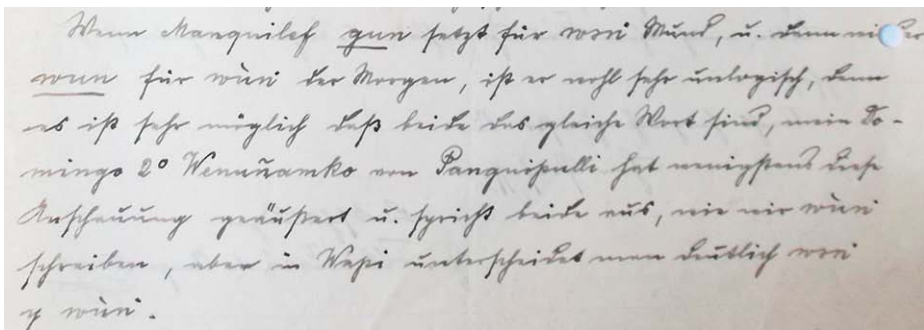 Wenn Manquilef gun setzt für wən Mund, u. dann wieder
wun für wün der Morgen, ist er wohl sehr unlogisch, denn
es ist sehr möglich daß beide das gleiche Wort sind, mein Do-
mingo 2º Wenuñamko von Panguipulli hat wenigstens diese
Anschauung geäußert u. spricht beide aus, wie wir wün
schreiben, aber in Wapi unterscheidet man deutlich
y wün.